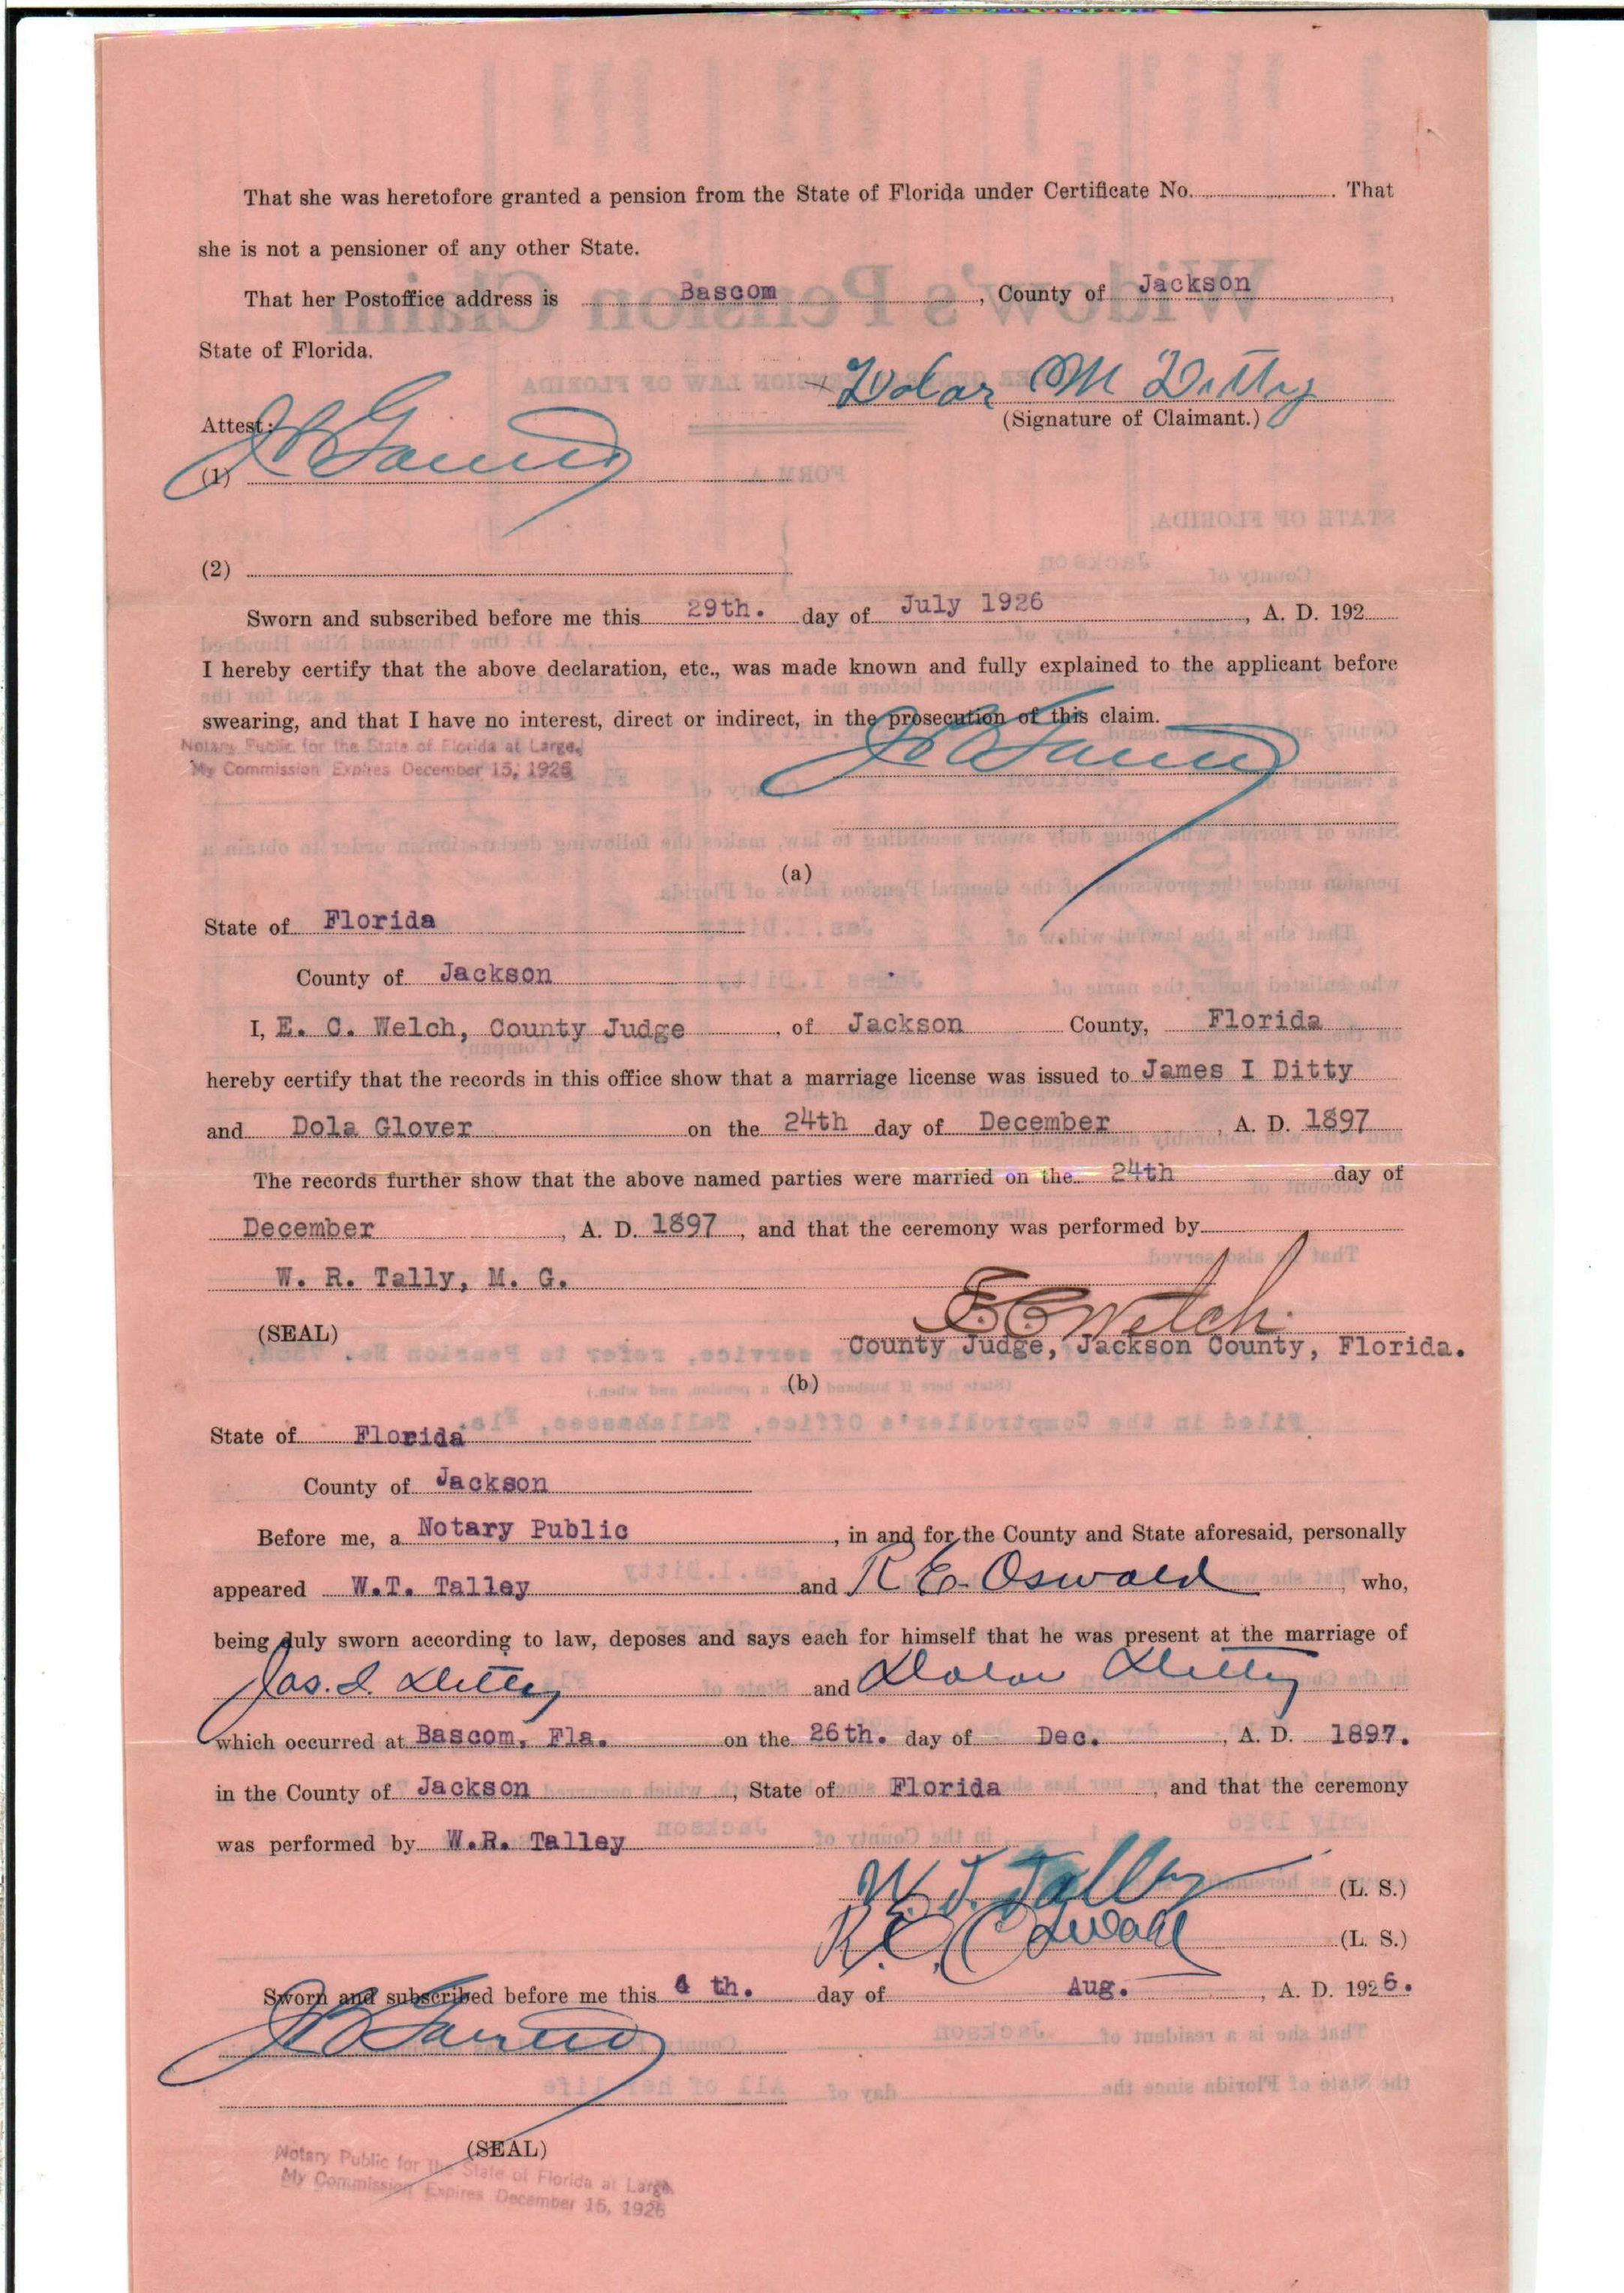 That she was heretofore granted a pension from the State of Florida under Certificate No. . That
she is not a pensioner of any other State.
That her Postoffice address is Bascom , County of Jackson ,
State of Florida.
Dolar M Ditty
Attest:
(Signature of Claimant.)
(1)
(2)
Sworn and subscribed before me this 29th. day of July 1926 , A. D. 192
I hereby certify that the above declaration, etc., was made known and fully explained to the applicant before
swearing, and that I have no interest, direct or indirect, in the prosecution of this claim.
Notary Public for the State of Florida at Large.
My Commission Expires December 15, 1926
(a)
State of Florida
County of Jackson
I, E. C. Welch, County Judge , of Jackson County, Florida
hereby certify that the records in this office show that a marriage license was issued to James I Ditty
and Dola Glover on the 24th day of December , A. D. 1897
The records further show that the above named parties were married on the 24th day of
December , A. D. 1897 , and that the ceremony was performed by
W. R. Tally, M. G.
E C Welch
(SEAL)
County Judge, Jackson County, Florida.
(b)
State of Florida
County of Jackson
Before me, a Notary Public , in and for the County and State aforesaid, personally
appeared W.T. Talley and R E Oswald , who,
being duly sworn according to law, deposes and says each for himself that he was present at the marriage of
Jas. I. Ditty and Dolar Ditty
which occurred at Bascom, Fla. on the 26th. day of Dec. , A. D. 1897.
in the County of Jackson , State of Florida , and that the ceremony
was performed by W.R. Talley
W. T. Talley (L. S.)
R. E. Oswald (L. S.)
Sworn and subscribed before me this 4 th. day of Aug. , A. D. 1926.
(SEAL)
Notary Public for the State of Florida at Large
My Commission Expires December 15, 1926